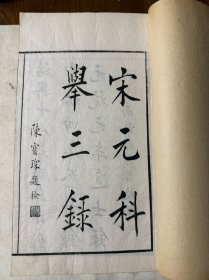 宋元科
舉三錄
陳寶琛題檢